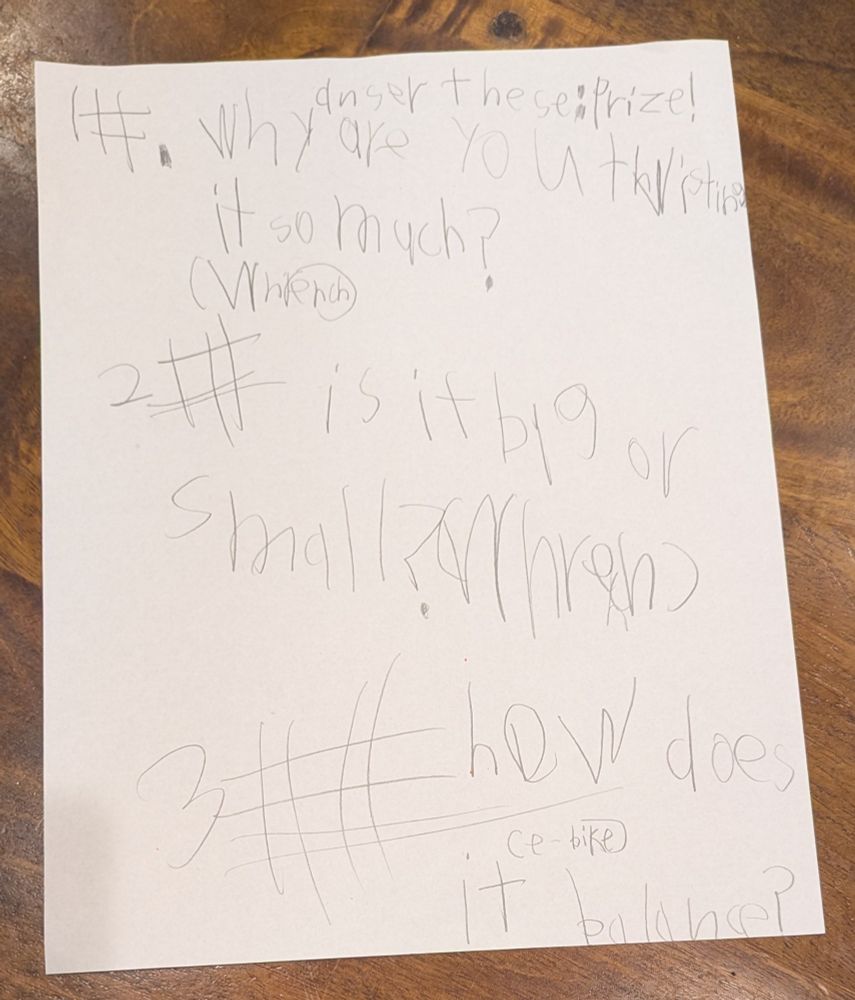 anser these: Prize!
1#. Why are you thwisting
it so much?
(Whrench)
2# is it big or
small? (Whrech)
3## how does
(e-bike)
it balance?